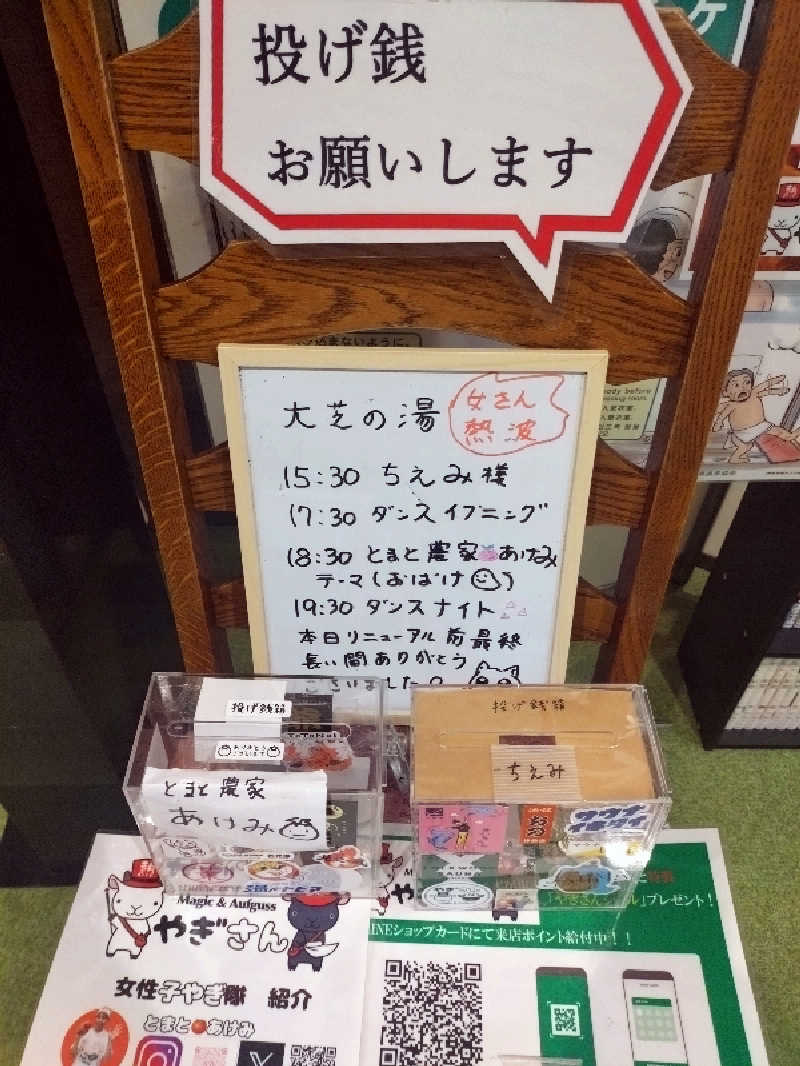 投げ銭
お願いします
大芝の湯
女さん
熱波
15:30 ちえみ様
17:30 ダンスイブニング
18:30 とまと農家あけみ
テーマ(おばけ)
19:30 ダンスナイト
本日リニューアル前最終
長い間ありがとう
ございました。
投げ銭箱
とまと農家
あけみ
投げ銭箱
ちえみ
Magic & Aufguss
やぎさん
女性子やぎ隊 紹介
とまとあけみ
プレゼント!
LINEショップカードにて来店ポイント給付中!!